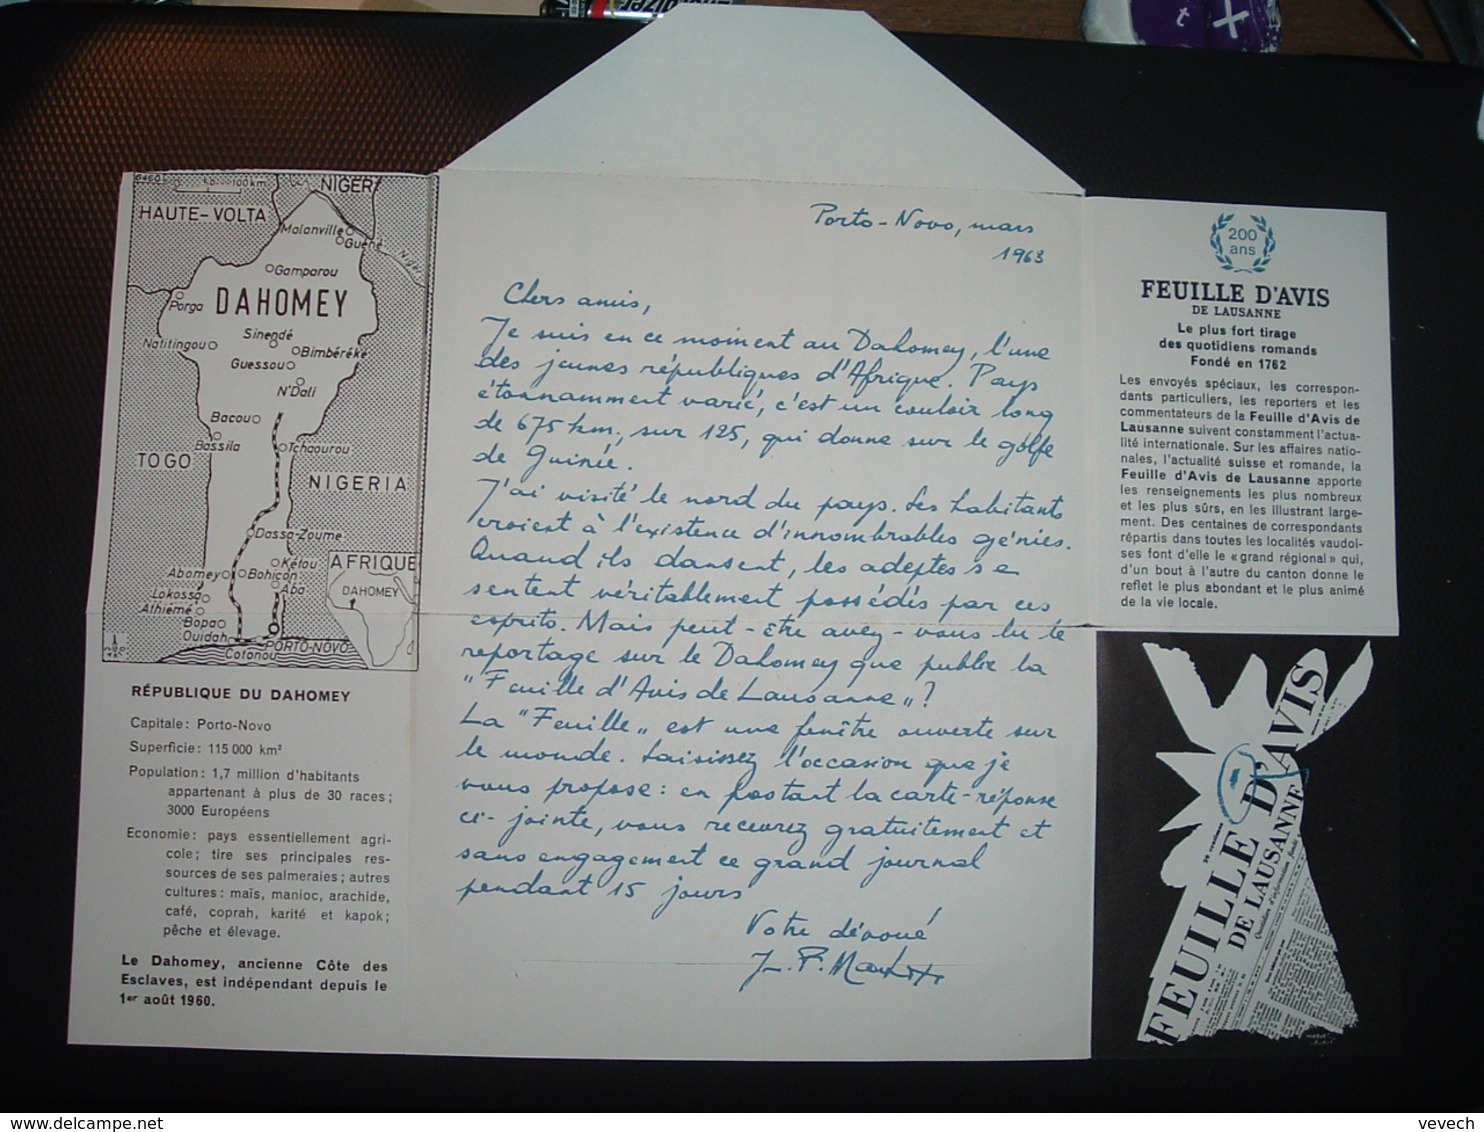 NIGER
100 km
HAUTE-VOLTA
Malanville
Guéné
Niger
Gamparou
Porga
DAHOMEY
Sinendé
Natitingou
Bimbéréké
Guessou
N'Dali
Bacou
Bassila
Tchaourou
TOGO
NIGERIA
Dassa-Zoume
Kétou
AFRIQUE
Abomey
Bohicon
Aba
DAHOMEY
Lokossa
Athiémé
Bopa
Ouidah
PORTO-NOVO
Cotonou
RÉPUBLIQUE DU DAHOMEY
Capitale: Porto-Novo
Superficie: 115 000 km²
Population: 1,7 million d'habitants
appartenant à plus de 30 races;
3000 Européens
Economie: pays essentiellement agri-
cole; tire ses principales res-
sources de ses palmeraies; autres
cultures: maïs, manioc, arachide,
café, coprah, karité et kapok;
pêche et élevage.
Le Dahomey, ancienne Côte des
Esclaves, est indépendant depuis le
1er août 1960.
Porto-Novo, mars
1963
Chers amis,
Je suis en ce moment au Dahomey, l'une
des jeunes républiques d'Afrique. Pays
étonnamment varié, c'est un couloir long
de 675 km., sur 125, qui donne sur le golfe
de Guinée.
J'ai visité le nord du pays. Les habitants
croient à l'existence d'innombrables génies.
Quand ils dansent, les adeptes se
sentent véritablement possédés par ces
esprits. Mais peut-être avez-vous lu le
reportage sur le Dahomey que publie la
"Feuille d'Avis de Lausanne"?
La "Feuille" est une fenêtre ouverte sur
le monde. Saisissez l'occasion que je
vous propose: en postant la carte-réponse
ci-jointe, vous recevrez gratuitement et
sans engagement ce grand journal
pendant 15 jours
Votre dévoué
200
ans
FEUILLE D'AVIS
DE LAUSANNE
Le plus fort tirage
des quotidiens romands
Fondé en 1762
Les envoyés spéciaux, les correspon-
dants particuliers, les reporters et les
commentateurs de la Feuille d'Avis de
Lausanne suivent constamment l'actua-
lité internationale. Sur les affaires natio-
nales, l'actualité suisse et romande, la
Feuille d'Avis de Lausanne apporte
les renseignements les plus nombreux
et les plus sûrs, en les illustrant large-
ment. Des centaines de correspondants
répartis dans toutes les localités vaudoi-
ses font d'elle le «grand régional» qui,
d'un bout à l'autre du canton donne le
reflet le plus abondant et le plus animé
de la vie locale.
FEUILLE D'AVIS
DE LAUSANNE
delcampe.net
vevech